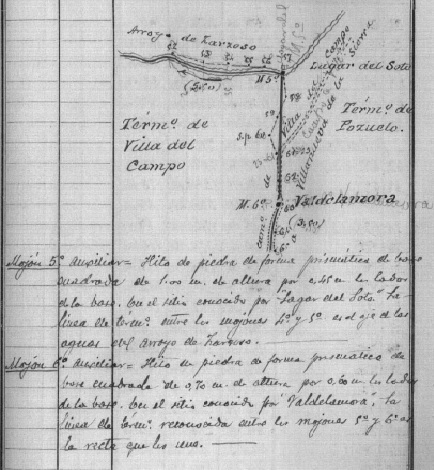 Arroyo de Zarzoso
M. 5º
Lugar del Soto
Térmº. de
Villa del
Campo
Térmº. de
Pozuelo.
M. 6º
Valdelamora
Mojón 5º Auxiliar = Hito de piedra de forma prismática de base
cuadrada de 1.00 m. de altura por 0,45 m. en los lados
de la base. En el sitio conocido por "Lagar del Soto". La
línea de térmº. entre los mojones 4º y 5º es el eje de las
aguas del Arroyo de Zarzoso.
Mojón 6º Auxiliar = Hito de piedra de forma prismática de
base cuadrada de 0,70 m. de altura por 0,60 m. en los lados
de la base. En el sitio conocido por "Valdelamora". La
línea de térmº. reconocida entre los mojones 5º y 6º es
la recta que los une.